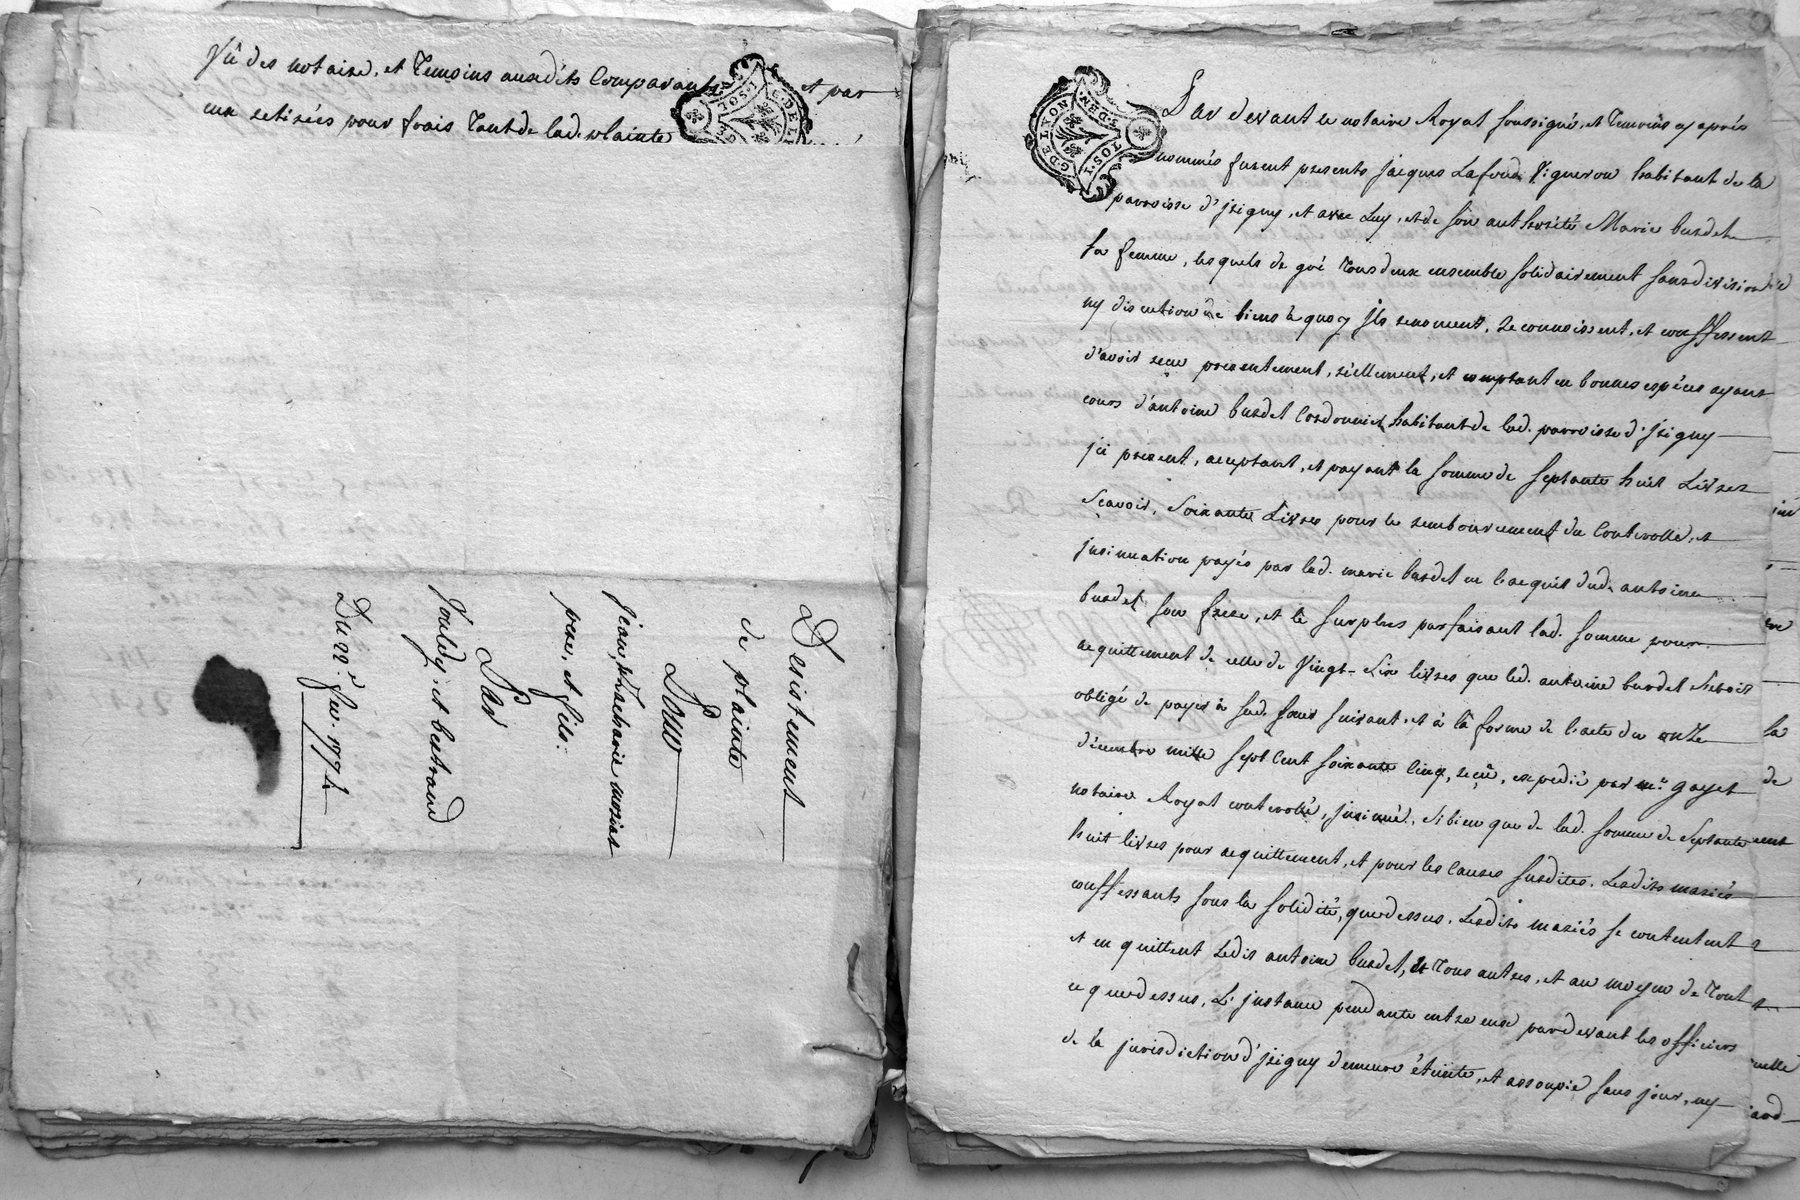 Vû des notaire, et Temoins ausdits Comparants et par
eux retirées pour frais Tant de lad. plainte
Desistement
de plainte
Pour
Jean, & Zacharie
pere, et fils.
Par
et bertrand
Du 22e. fev. 1774
G. DE LYON
1.S.DEN
TOS.1
Par devant le notaire Royal soussigné, et Temoins cy après
nommés furent presents jacques Lafond Vigneron habitant de la
parroisse d'jzigny, et avec Luy, et de son authorité Marie burdet
sa femme, lesquels de gré Tous deux ensemble solidairement sans division
ny discution de biens à quoy jls renoncent, Reconnoissent, et conffessent
d'avoir reçu presentement, réellement, et comptant en bonnes espèces ayant
cours d'antoine burdet Cordonnier habitant de lad. parroisse d'jzigny
jci present, acceptant, et payant la somme de septante huit Livres
Scavoir, Soixante Livres pour le remboursement du Controlle, et
jnsinuation payés par lad. marie burdet en l'acquit dud. antoine
burdet son frere, et le surplus parfaisant lad. somme pour
acquittement de celle de Vingt-Six livres que led. antoine burdet s'étoit
obligé de payer à sad. sœur suivant, et à la forme de l'acte du onze
décembre mille sept Cent soixante Cinq, reçû, expedié par me. gayet
notaire Royal controllé, jnsinué, Si bien que de lad. somme de septante
huit livres pour acquittement, et pour les causes susdites. Lesdits mariés
conffessants sous la solidité, que dessus. Lesdits mariés se contentent
et en quittent Ledit antoine burdet, et Tous autres, et au moyen de Tout
ce que dessus, L'jnstance pendante entre eux pardevant les officiers
de la jurisdiction d'jzigny demeure éteinte, et assoupie sans jour, ny